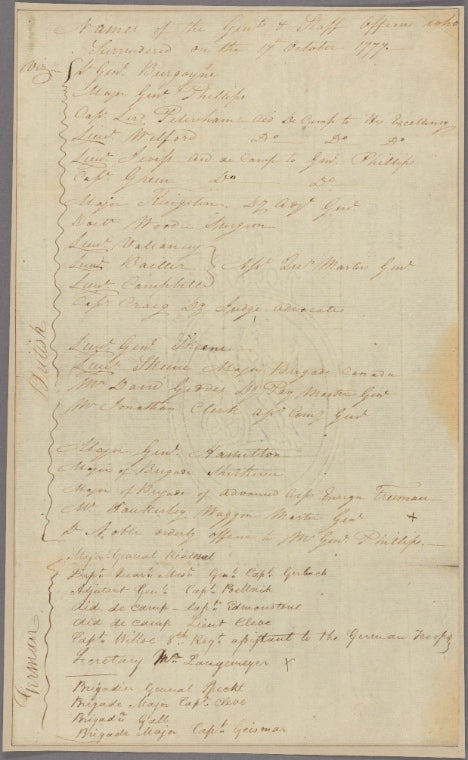 Names of the Genl. & Staff Officers who
Surrendered on the 17th October 1777.
Viz
Lt Genl. Burgoyne
Major Genl Phillips
Capt. Lord Petersham Aid De Camp to His Excellency
Lieut. Wilford Do Do Do
Lieut. Aid de Camp to Genl. Phillips
Capt. Green Do Do
Major Kingston Dy Adjt Genl.
Doctr Wood Surgeon
Lieut. Vallancey
Lieut. Asst Qur. Master Genl.
Lieut. Campbell
Capt. Craig Dy Judge Advocate
British
Lieut. Genl. Skene
Lieut. Skene Major Brigade Canada
Mr. David Geddes Dy Pay Master Genl
Mr Jonathan Clerk Asst Comy Genl
Major Genl. Hamilton
Major of Brigade
Major of Brigade of Advanced Corps Ensign Freeman
Mr. Waggon Master Genl +
Lt Noble orderly officer to M Genl Phillips.
Major General
Dept. Quartr Mastr Genl. Capt. Gerlach
Adjutant Genl. Capt. Poellnitz
Aid de camp - Capt. Edmonstone
Aid de camp Lieut Cleve
Capt. Willoe 8th Regt assistant to the German Troops
Secretary Mr. Langemeyer x
German
Brigadier General Specht
Brigade Major Capt. Cleve
Brigadr Gall
Brigade Major Capt. Geismar